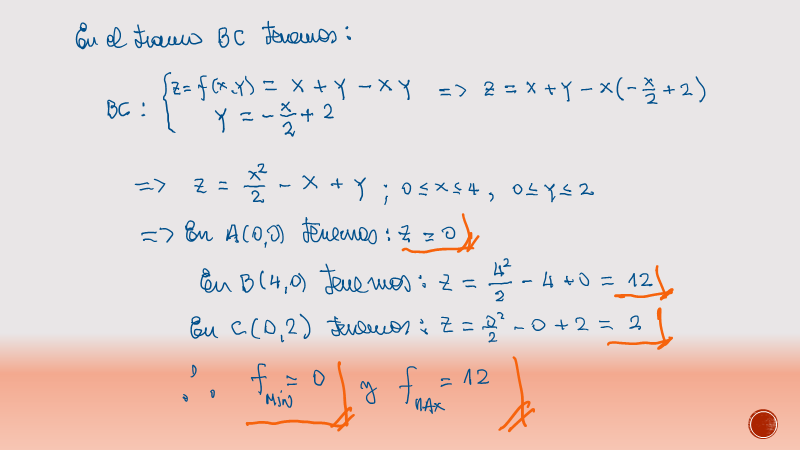 En el tramo BC tenemos:
BC: { z = f(x,y) = x + y - xy => z = x + y - x(-x/2 + 2)
y = -x/2 + 2
=> z = x²/2 - x + y ; 0 ≤ x ≤ 4, 0 ≤ y ≤ 2
=> En A(0,0) tenemos: z = 0
En B(4,0) tenemos: z = 4²/2 - 4 + 0 = 12
En C(0,2) tenemos: z = 0²/2 - 0 + 2 = 2
∴ f_MIN = 0 y f_MAX = 12